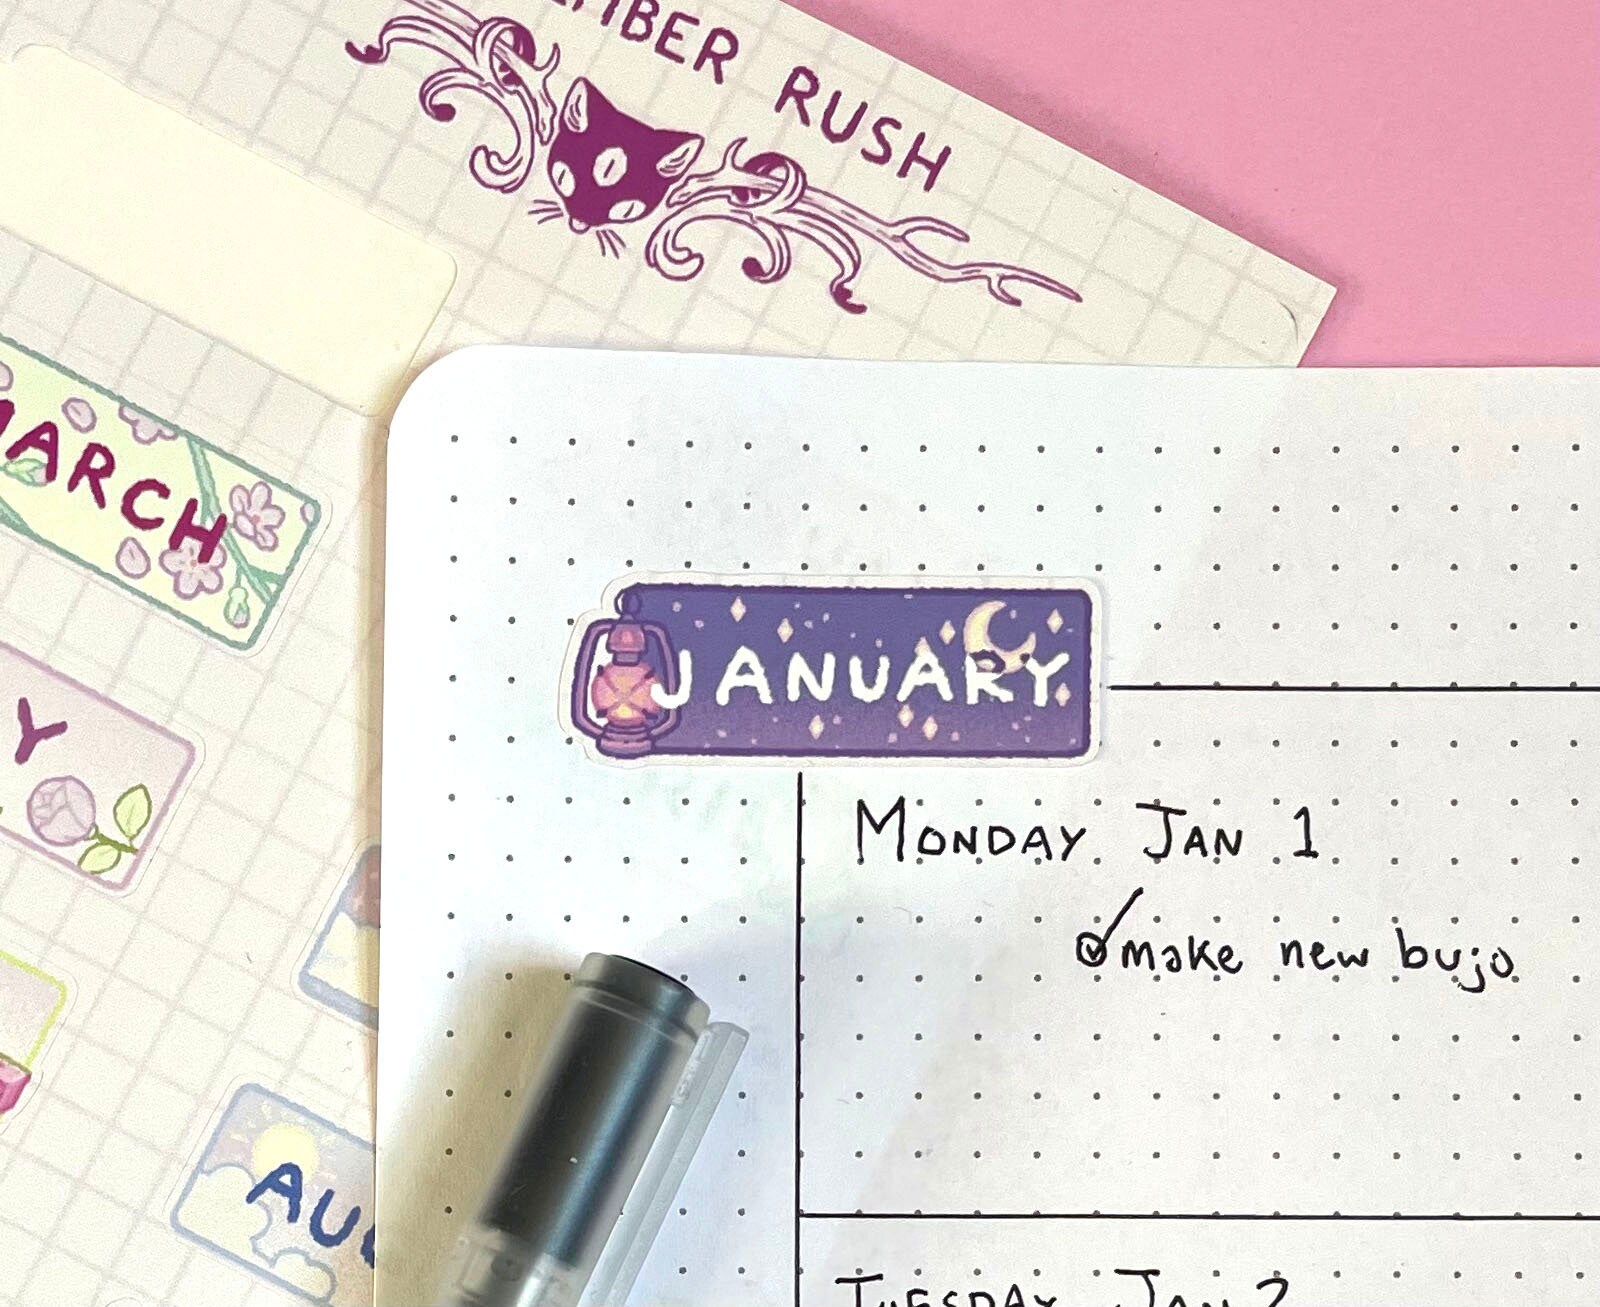 RUSH
MARCH
JANUARY
MONDAY JAN 1
make new bujo
TUESDAY JAN 2